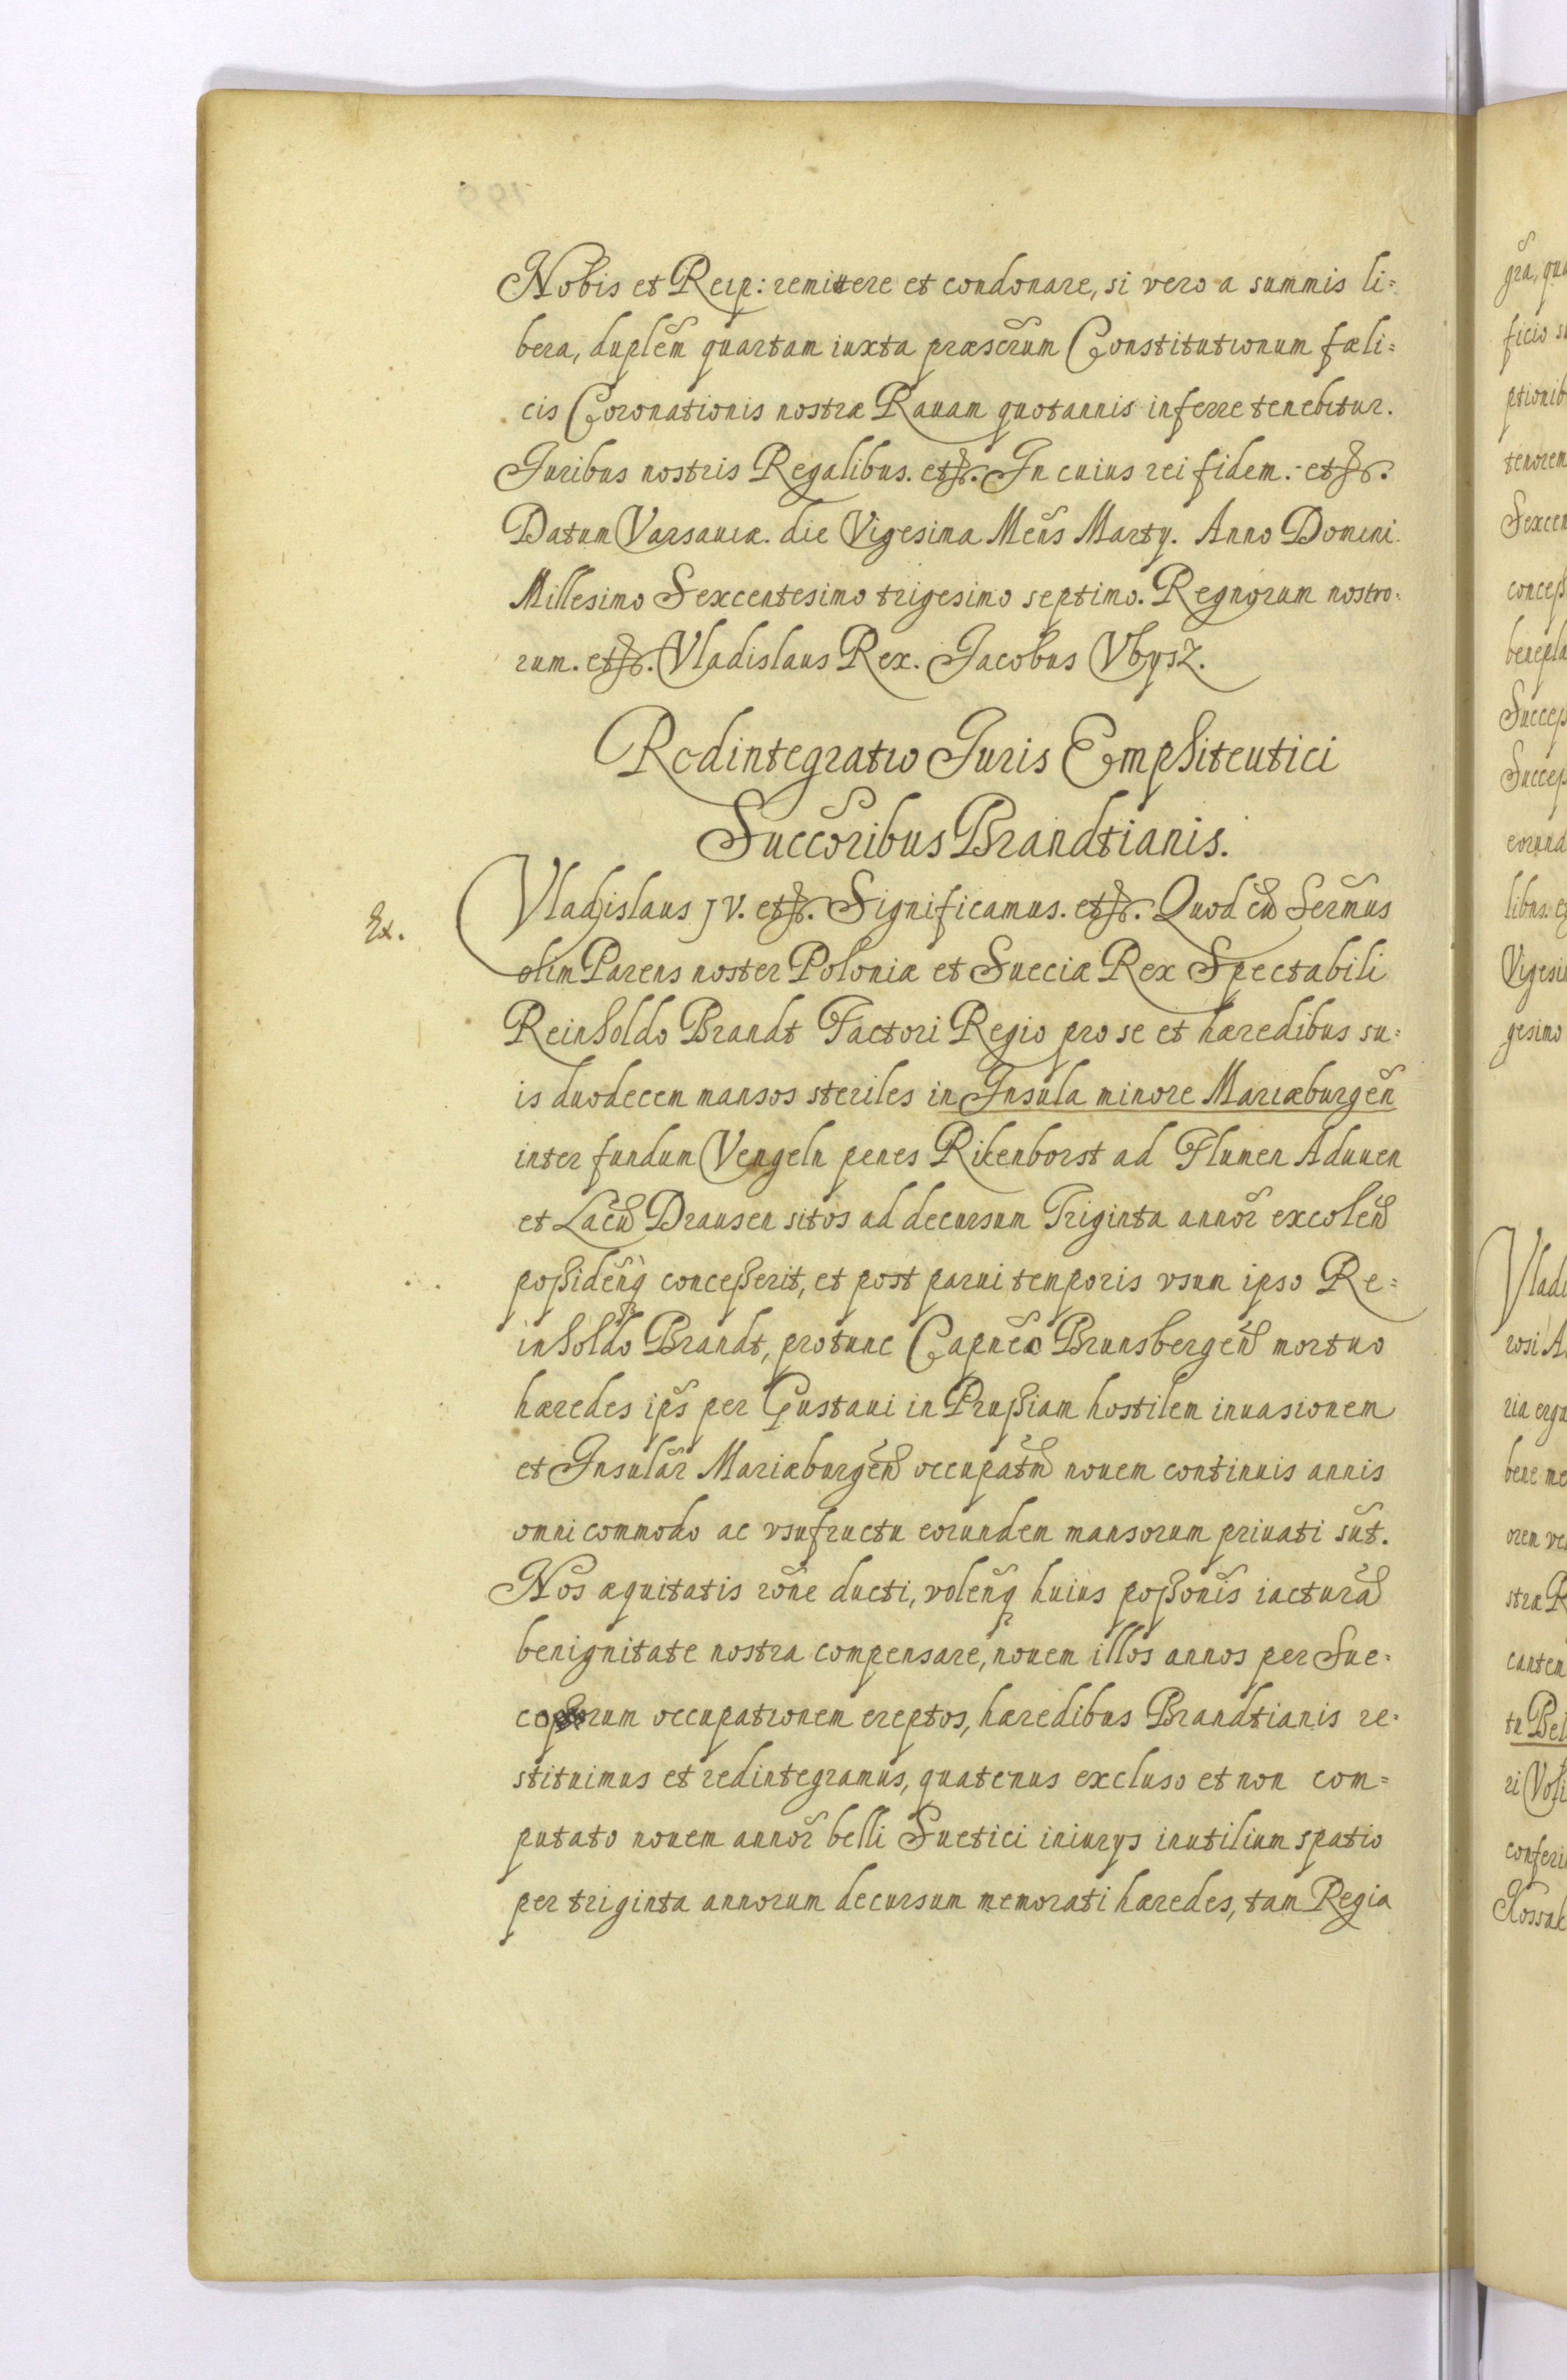 Nobis et Reip: remittere et condonare, si vero a summis li=
bera, duplem̃ quartam iuxta præscr̃um Constitutionum fæli=
cis Coronationis nostræ Rauam quotannis inferre tenebitur.
Juribus nostris Regalibus. etc. In cuius rei fidem. etc.
Datum Varsauiæ. die Vigesima Meñs Martÿ. Anno Domini.
Millesimo Sexcentesimo trigesimo septimo. Regnorum nostro=
rum. etc. Vladislaus Rex. Jacobus Vbysz.
Redintegratio Juris Emphiteutici
Succ̃oribus Brandtianis.
Ex.
Vladislaus IV. etc. Significamus. etc. Quod cũ Serm̃us
olim Parens noster Poloniæ et Sueciæ Rex Spectabili
Reinholdo Brandt Factori Regio pro se et hæredibus su=
is duodecem mansos steriles in Insula minore Mariæburgeñ
inter fundum Vengeln penes Rikenborst ad Flumen Aduuen
et Lacũ Drausen sitos ad decursum Triginta annor̃ excoleñd
poßideñq concesserit, et post parui temporis vsum ipso Re=
inholdo Brandt, protunc Capñeo Brunsbergeñ mortuo
hæredes ip̃s per Gustaui in Prußiam hostilem inuasionem
et Insular̃ Mariæburgeñ occupatñ nouem continuis annis
omni commodo ac vsufructu eorundem mansorum priuati sũt.
Nos æquitatis rõne ducti, voleñq huius poßõnis iacturã
benignitate nostra compensare, nouem illos annos per Sue=
corum occupationem ereptos, hæredibus Brandtianis re=
stituimus et redintegramus, quatenus excluso et non com=
putato nouem annor̃ belli Suetici iniurÿs inutilium spatio
per triginta annorum decursum memorati hæredes, tam Regia